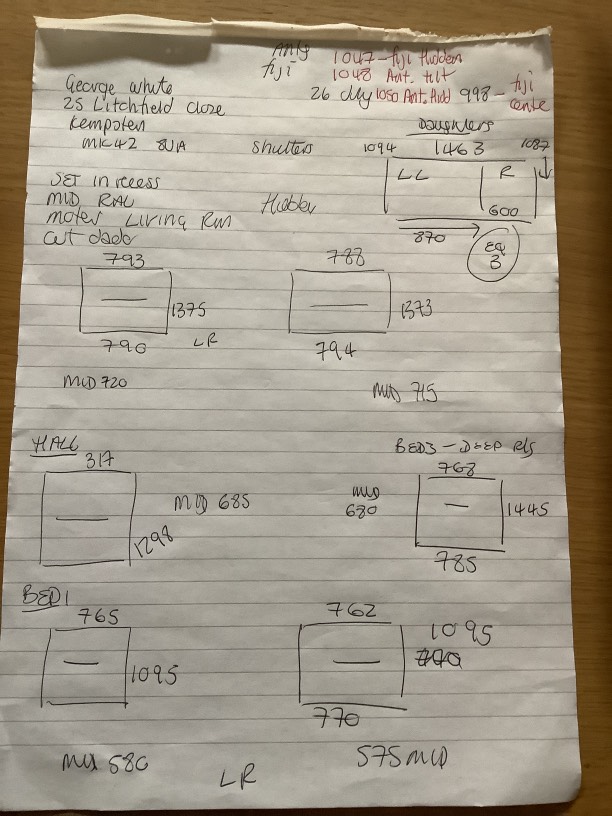 Antig 1047 - fiji Hidden
fiji 1048 Ant. tilt
George white 26 dly 1050 Ant. Hidd 998 - fiji
25 Litchfield close cente
Kempsten Daughters
MK42 8UA shutters 1094 1463 1087
LL R
SET in recess
MID RAL Hidden 600
motel Living Rm 870 EQ
cut dado 3
793 788
1375 1373
790 LR 794
MID 720 MID 715
HALL BED3 - DEEP
317 768
MID 685 MID 1445
1298 680
785
BED1
765 762
1095 1095
770
MID 580 575 MID
LR